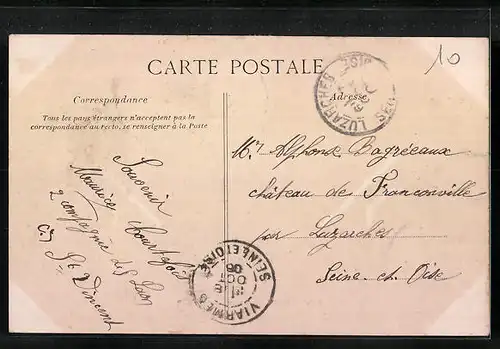 10
CARTE POSTALE
Correspondance
Tous les pays étrangers n'acceptent pas la
correspondance au recto, se renseigner à la Poste
Adresse
LUZARCHES
Souvenir
Maurice
2 compagnie des
St Vincent
Mr Alphonse Bagréeaux
château de Franconville
par Luzarches
Seine et Oise
VIARMES
SEINE ET OISE
OCT
05